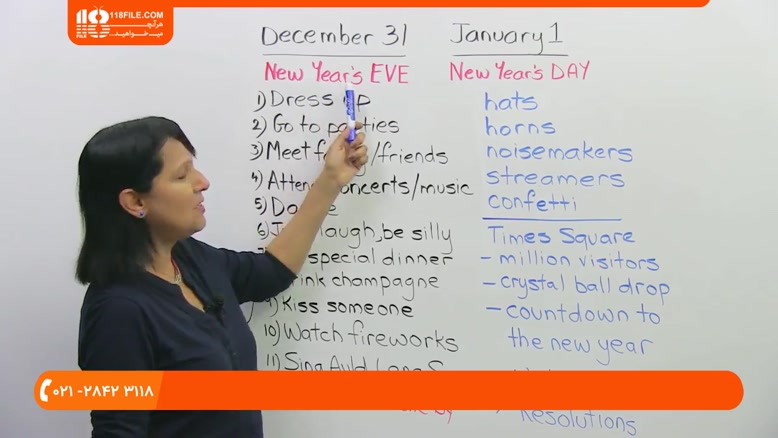 118FILE.COM
هر آنچه
می‌خواهید...
118
FILE
December 31
New Year's EVE
1) Dress up
2) Go to parties
3) Meet /friends
4) Attend concerts/music
5) Dance
6) laugh, be silly
special dinner
Drink champagne
9) Kiss someone
10) Watch fireworks
11) Sing Auld Lang S
January 1
New Year's DAY
hats
horns
noisemakers
streamers
confetti
Times Square
- million visitors
- crystal ball drop
- countdown to
the new year
Resolutions
۰۲۱-۲۸۴۲ ۳۱۱۸